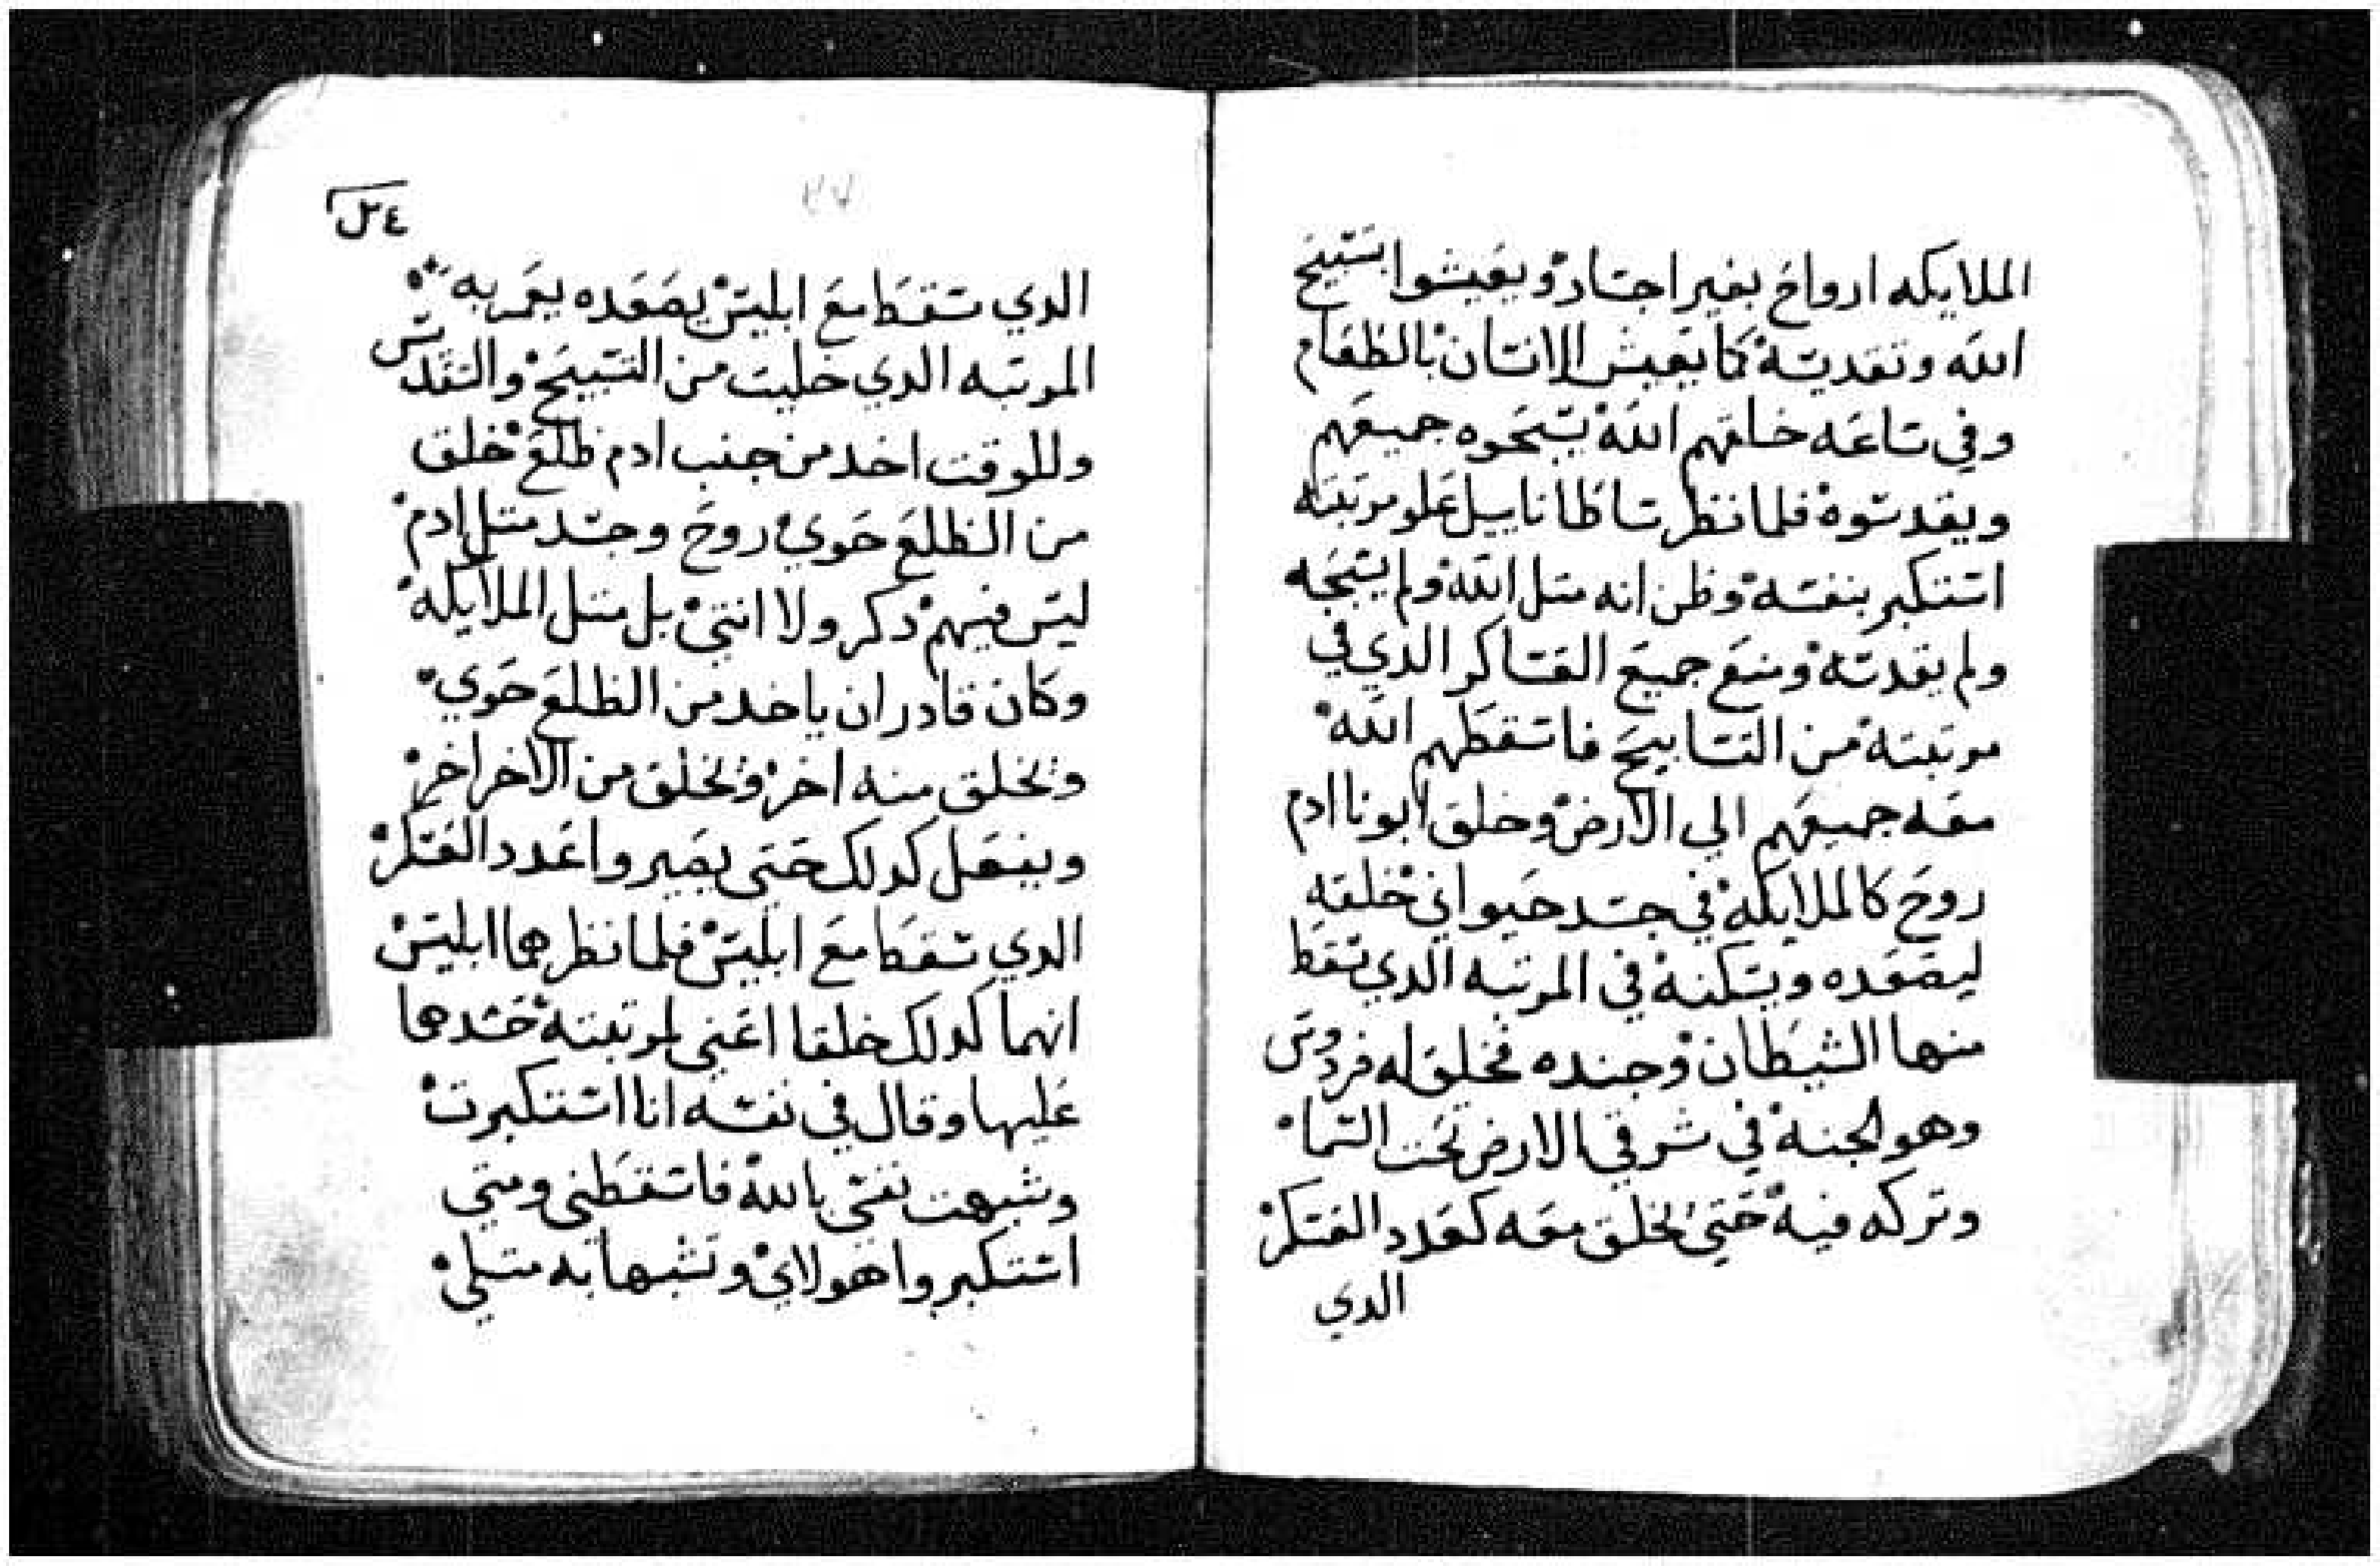 الملايكه ارواح بغير اجساد ويعيشوا بتسبيح
الله وتقديسه كما يعيش الانسان بالطعام
وفي ساعه خلقهم الله يسبحوه جميعهم
ويقدسوه فلما نظر ساطاناييل علو مرتبته
استكبر بنفسه وظن انه متل الله ولم يسبحه
ولم يقدسه ومنع جميع العساكر الدي في
مرتبته من التسابيح فاسقطهم الله
معه جميعهم الي الارض وخلق ابونا ادم
روح كالملايكه في جسد حيواني خلقه
ليصعده ويسكنه في المرتبه الدي سقط
منها الشيطان وجنده فخلق له فردوس
وهو الجنه في شرقي الارض تحت السما
وتركه فيه حتي يخلق معه كعدد العسكر
الدي
٢٧
الدي سقط مع ابليس يصعده يعمر به
المرتبه الدي خليت من التسبيح والتقديس
وللوقت اخد من جنب ادم ظلع خلق
من الظلع حوي روح وجسد متل ادم
ليس فيهم دكر ولا انتي بل متل الملايكه
وكان قادر ان ياخد من الظلع حوي
ونخلق منه اخر ونخلق من الاخر اخر
ويفعل كدلك حتى يصيروا عدد العسكر
الدي سقط مع ابليس فلما نظرهما ابليس
انهما كدلك خلقا اعني لمرتبته حسدهما
عليها وقال في نفسه انا استكبرت
وشبهت نفسي بالله فاسقطني ومتي
استكبروا هولاي وتشبها به متلي